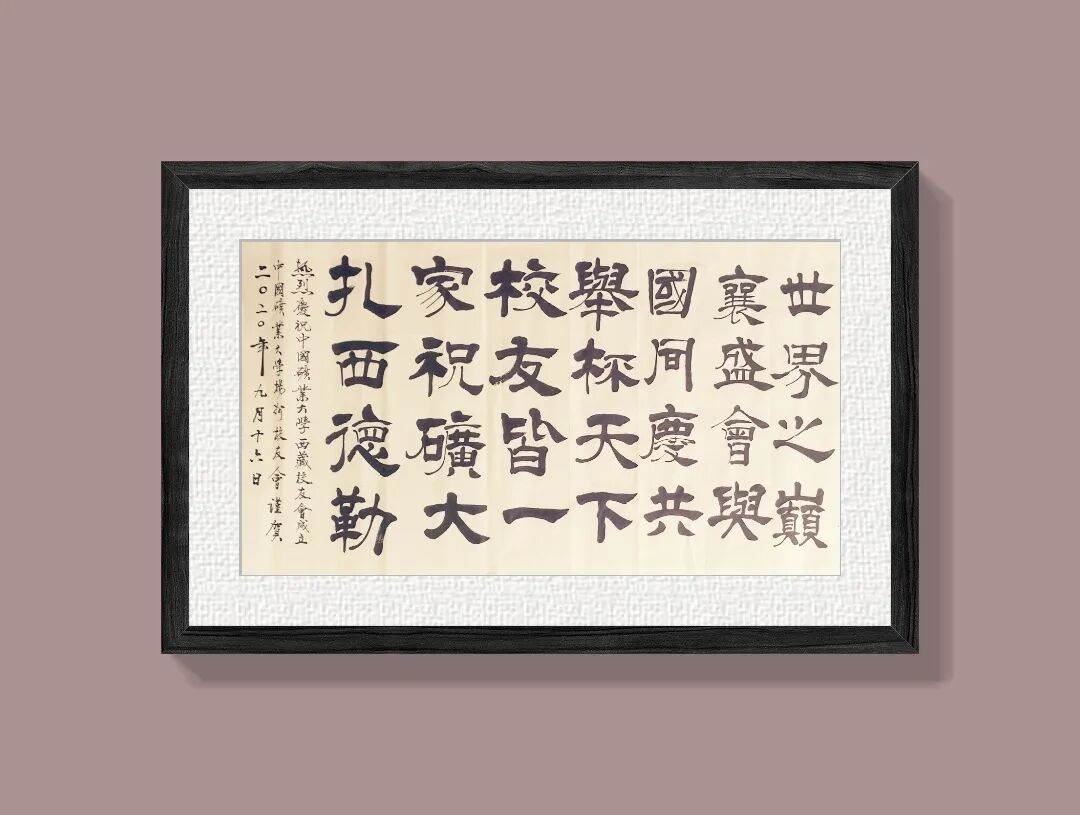 世界之巔
襄盛會與
國同慶共
舉杯天下
校友皆一
家祝礦大
扎西德勒
熱烈慶祝中國礦業大學西藏校友會成立
中國礦業大學揚州校友會謹賀
二〇二〇年九月十六日